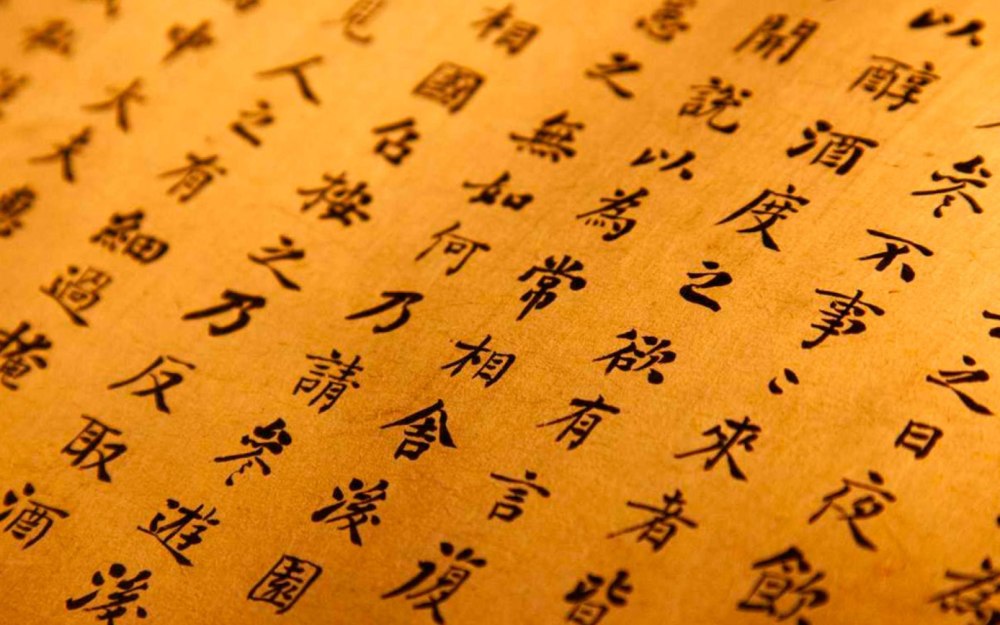 為
之日夜飲
參不事〻來者皆
以醇酒度之欲有言復
開說以為常相舍後園
惡之無如何乃請參遊後
相國召按之乃反取酒
見人之有細過掩
中大夫惠